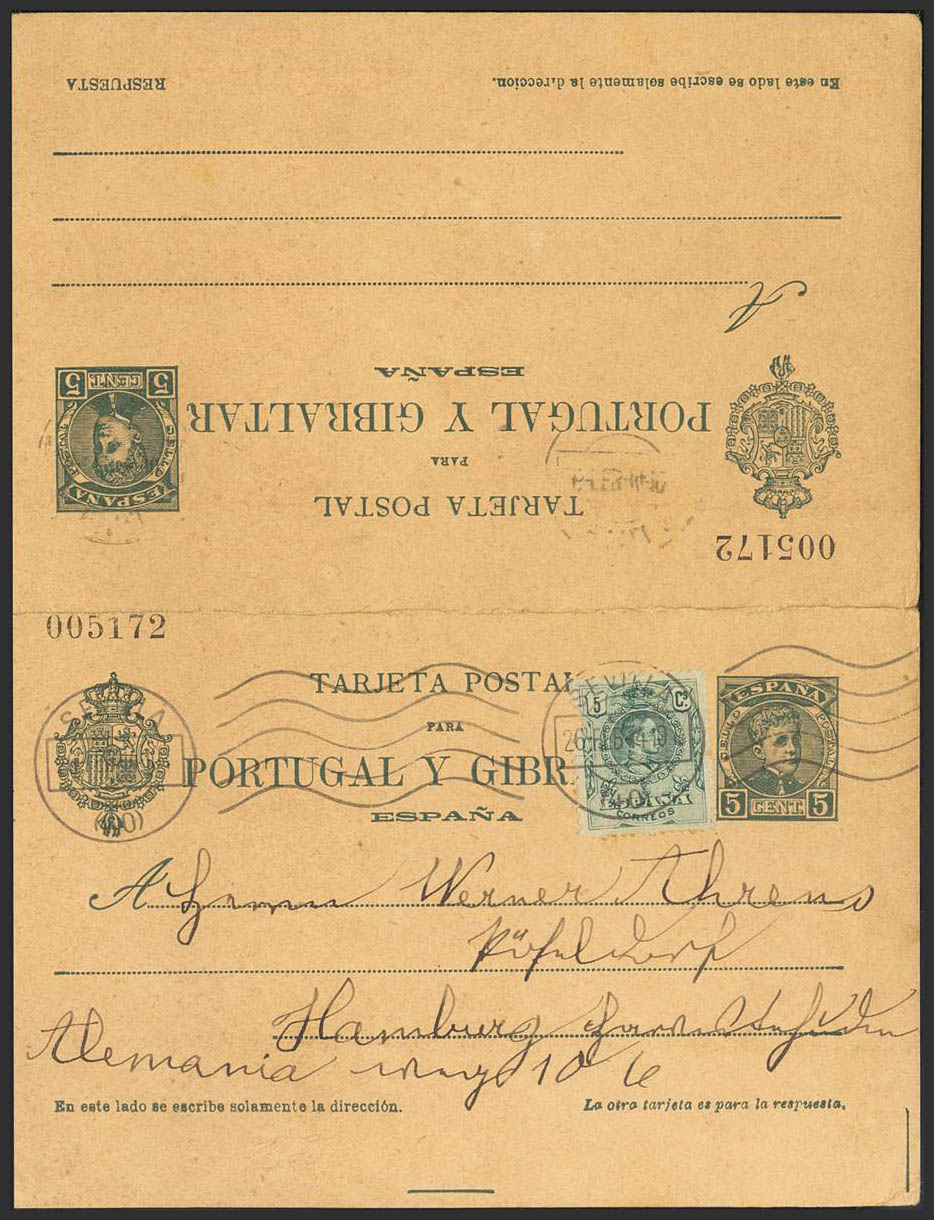 RESPUESTA
En este lado se escribe solamente la dirección.
A
ESPAÑA
PORTUGAL Y GIBRALTAR
PARA
TARJETA POSTAL
5 CENT. 5
SELLO POSTAL
ESPAÑA
005172
005172
TARJETA POSTA
PARA
PORTUGAL Y GIBR
ESPAÑA
SEVILLA
SEVILLA
15 Cs
CORREOS
ESPAÑA
SELLO POSTAL
5 CENT. 5
A Herrn Werner Ahrens
Hamburg
Alemania weg 10
En este lado se escribe solamente la dirección.
La otra tarjeta es para la respuesta.